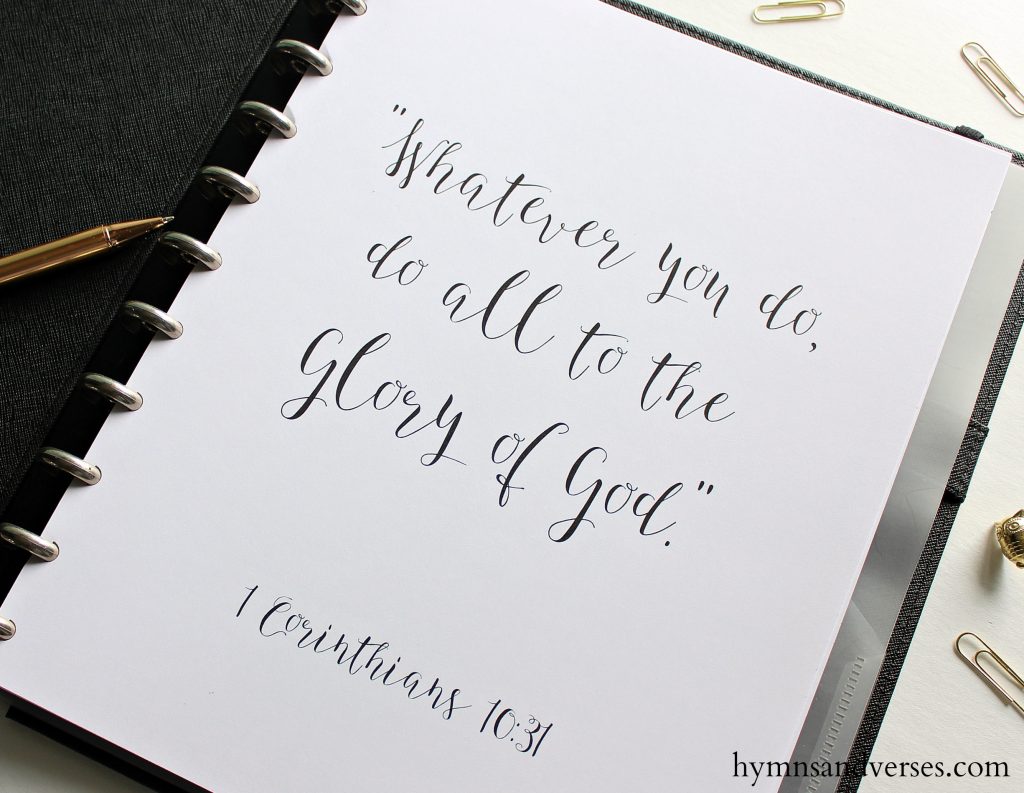 "Whatever you do,
do all to the
Glory of God."
1 Corinthians 10:31
hymnsandverses.com